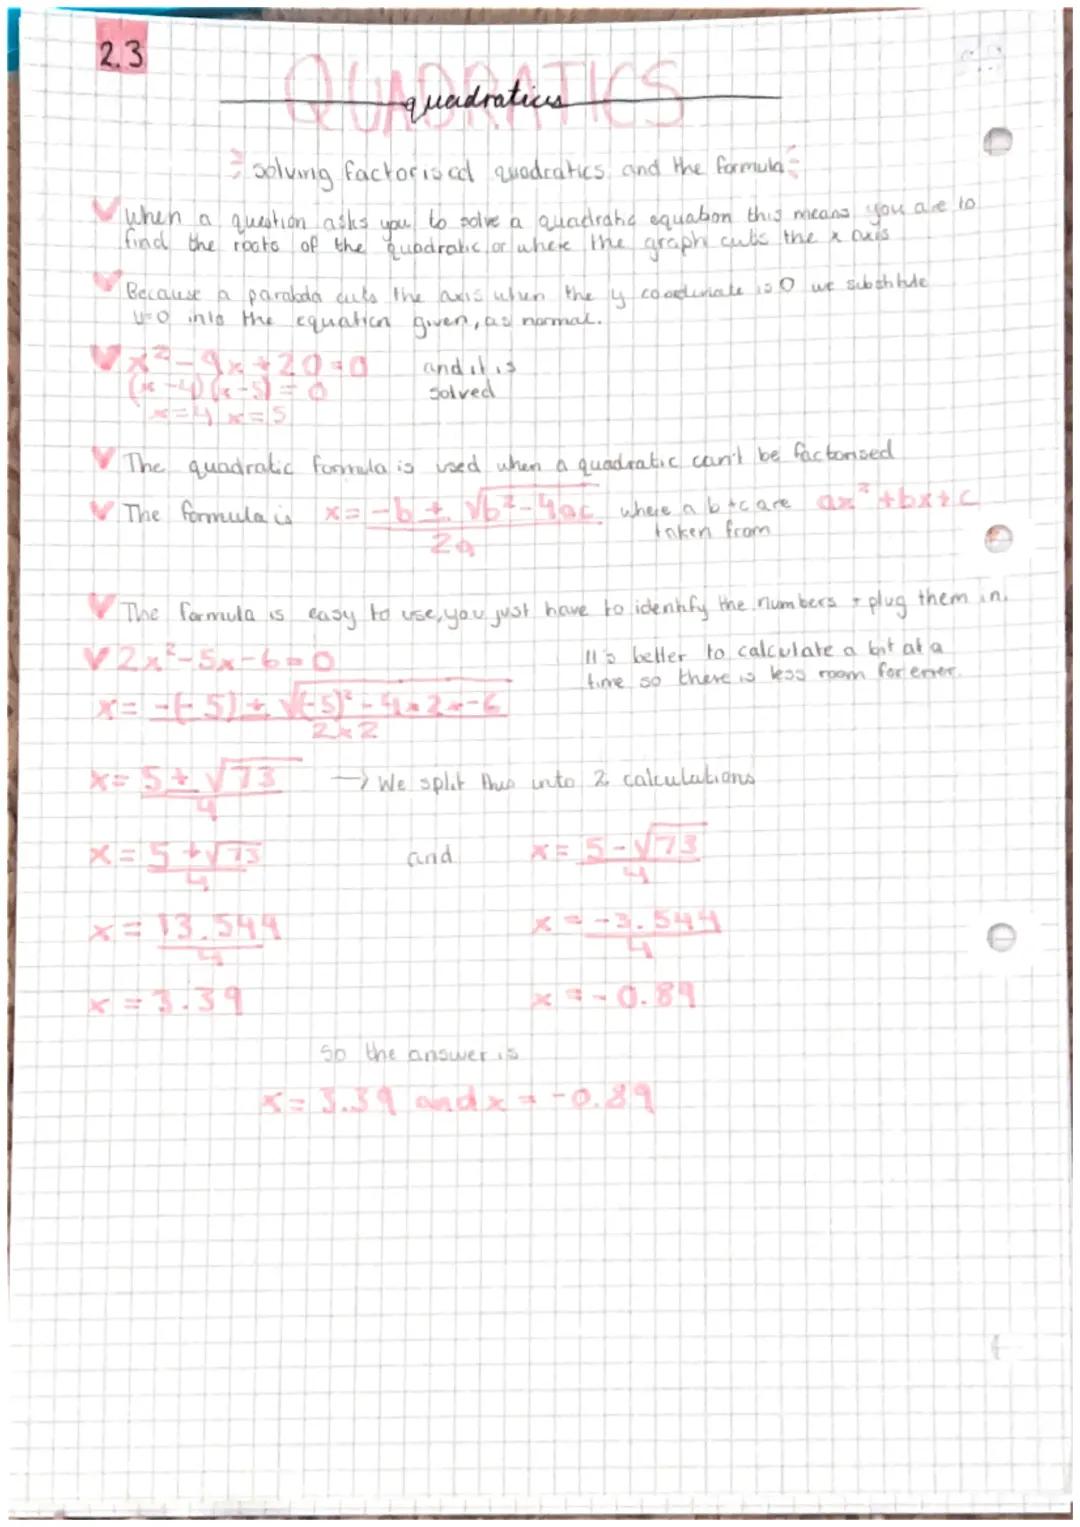 2.3
QUADRATICS
quadratics
solving factorised quadratics and the formula
When a question asks you to solve a quadratic equation this means you are to
find the roots of the quadratic, or where the graph cuts the x axis
Because a parabola cuts the axis when the y coordinate is 0 we substitute
y=0 into the equation given, as normal.
x²-9x+20=0 and it is
(x-4)(x-5)=0 solved
x=4 x=5
The quadratic formula is used when a quadratic can't be factorised
The formula is x= -b ± √b²-4ac where a b + c are ax²+bx+c
2a taken from
The formula is easy to use, you just have to identify the numbers + plug them in.
2x²-5x-6=0 It's better to calculate a bit at a
time so there is less room for error.
x= -(-5) ± √(-5)²-4×2×-6
2×2
x= 5 ± √73 → We split this into 2 calculations
4
x= 5+√73 and x= 5-√73
4 4
x= 13.544 x= -3.544
4 4
x=3.39 x=-0.89
so the answer is
x=3.39 and x=-0.89